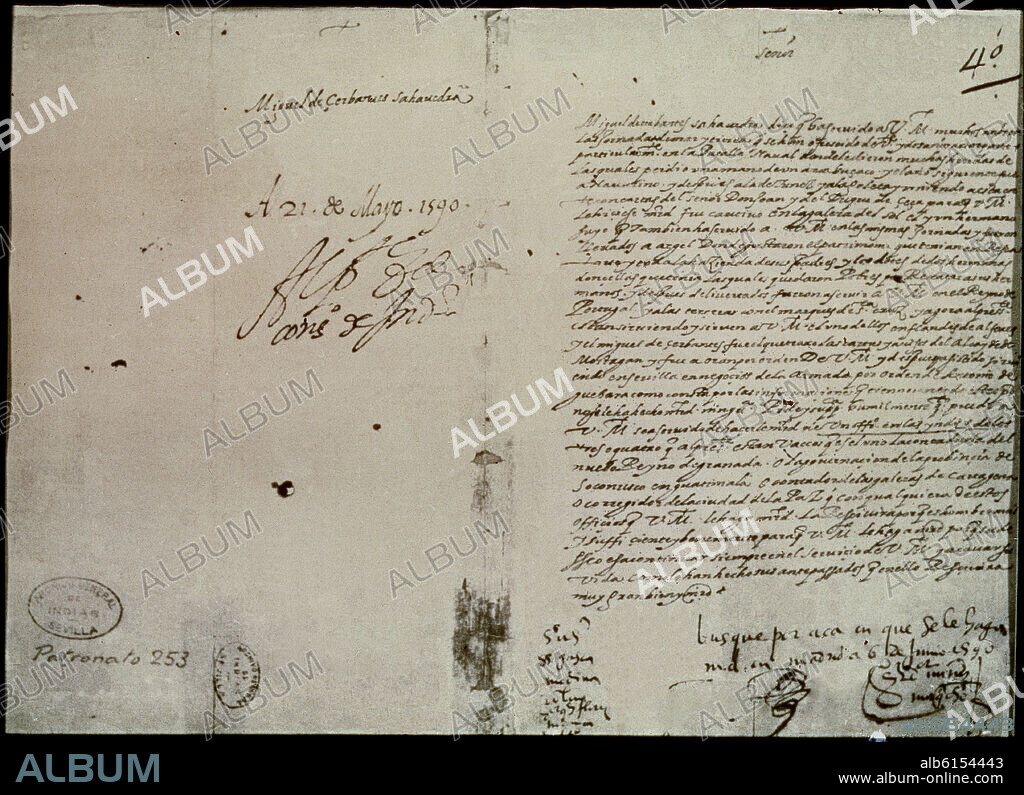 Miguel de Çerbantes Sahavedra
A 21. de Mayo. 1590.
Al Pte del
cons.º de Ind.s
ARCHIVO GENERAL
DE
INDIAS
SEVILLA
Patronato 253
Señor
4º
Miguel de cerbantes sahavedra dice q ha seruido a V. M. muchos años en
las jornadas de mar y tierra q se han ofrescido de
particularm.te en la Batalla Naual donde le dieron muchas heridas de
las quales perdio una mano de un arcabuçaco y el año siguiente fue
a Nauarino y despues a la de Tunez y a la goleta y viniendo a esta corte
con cartas del señor Don Joan y del Duque de Çeça para q V. M.
le hiciese md. fue cautiuo en la galera del sol el y un hermano
suyo q tambien ha seruido a V. M. en las mismas jornadas y fueron
lleuados a argel donde gastaron el patrimonio que tenian en Rescatarse
y toda la hacienda de sus padres y las dotes de dos hermanas
doncellas que tenia las quales quedaron pobres por Rescatar a sus her
manos y despues de liuertados fueron a seruir a V. M. en el Reyno de
Portugal y a las terceras con el marques de S.ta cruz y agora al presente
estan siruiendo y siruen a V. M. el uno dellos en flandes de alferez
y el miguel de çerbantes fue el que traxo las cartas y auisos del Alcayde de
Mostagan y fue a oran por orden de V. M. y despues
en seuilla en negocios de la Armada por orden de Antonio de
guebara como consta por las informaciones que tiene y en todo este tiempo
no se le ha hecho md. ninguna Pide y suplica humilmente q
V. M. sea seruido de hacerle md. de un officio en las yndias de los
tres o quatro q al presente estan vaccos q es el uno la contaduria del
nueuo Reyno de granada. O la gouernacion de la probincia de
Soconusco en guatimala O contador de las galeras de Cartagena
O corregidor de la ciudad de la Paz q con qualquiera de estos
officios q V. M. le haga md. la Resciuira porque es hombre auil
y sufficiente y benemerito para q V. M. le haga md. porque su de
sseo es a continuar siempre en el seruicio de V. M. y acauar su
vida como lo han hecho sus antepassados que en ello Resciuira
muy gran bien y md.
busque por aca en que se le haga
md. en madrid a 6 de Junio 1590
medina
ALBUM
alb6154443
www.album-online.com